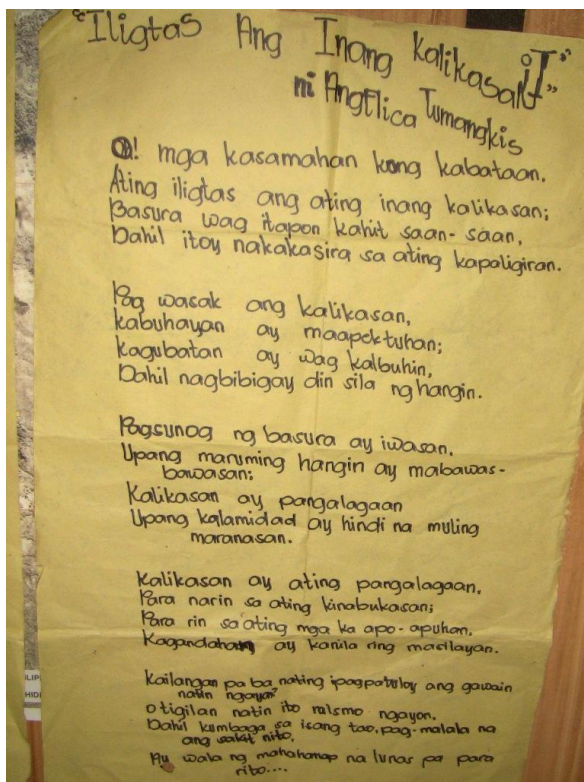 "Iligtas Ang Inang Kalikasan"
ni Angelica Tumangkis
Oh! mga kasamahan kong kabataan.
Ating iligtas ang ating inang kalikasan;
Basura wag itapon kahit saan-saan,
Dahil itoy nakakasira sa ating kapaligiran.
Pag wasak ang kalikasan,
kabuhayan ay maapektuhan;
kagubatan ay wag kalbuhin,
Dahil nagbibigay din sila ng hangin.
Pagsunog ng basura ay iwasan,
Upang maruming hangin ay mabawas-
bawasan;
Kalikasan ay pangalagaan
Upang kalamidad ay hindi na muling
maranasan.
Kalikasan ay ating pangalagaan,
Para narin sa ating kinabukasan;
Para rin sa ating mga ka apo-apuhan,
Kagandahan ay kanila ring masilayan.
Kailangan pa ba nating ipagpatuloy ang gawain
natin ngayon?
o tigilan natin ito mismo ngayon.
Dahil kumbaga sa isang tao, pag-malala na
ang sakit nito,
Ay wala ng mahahanap na lunas pa para
rito....